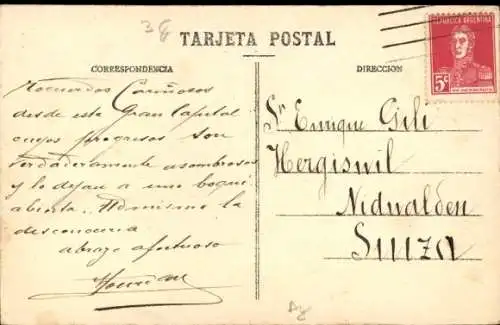 38
TARJETA POSTAL
CORRESPONDENCIA
DIRECCION
REPUBLICA ARGENTINA
5c
Recuerdos Cariñosos
desde esta Gran Capital
cuyos progresos son
verdaderamente asombrosos
y lo dejan a uno boqui
abierta. Admiremos la
desconocida
abrazo afectuoso
Sr Enrique Gili
Hergiswil
Nidwalden
Suiza